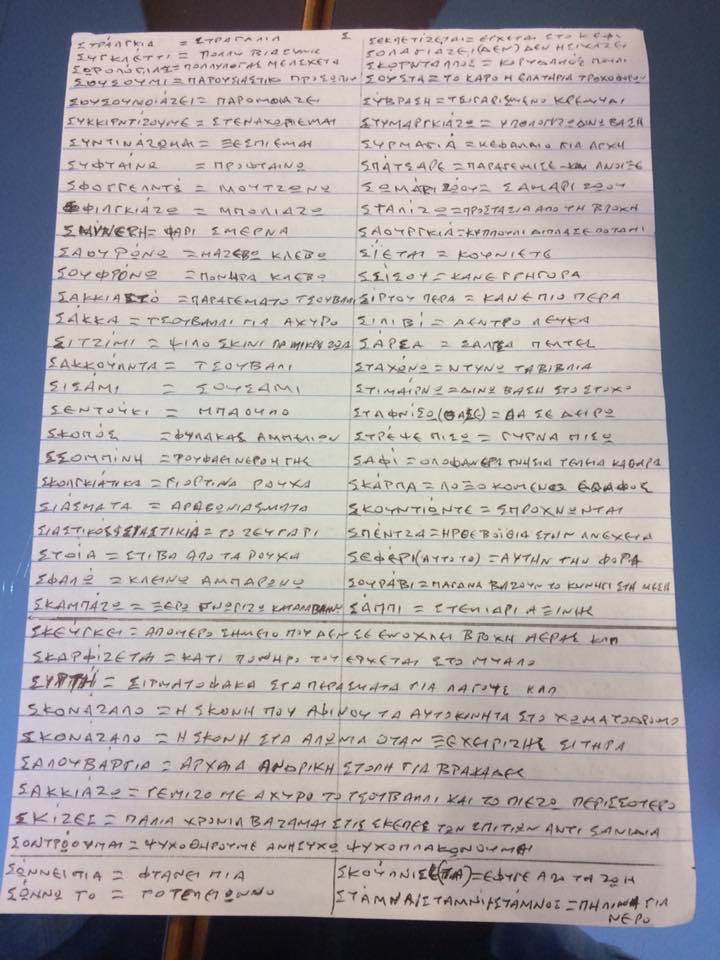 ΣΤΡΑΛΓΚΙΑ = ΣΤΡΑΓΑΛΙΑ
ΣΥΓΚΛΕΤΤΙ = ΠΟΛΛΥ ΒΙΑΣΥΝΗΣ
ΣΩΡΟΛΟΓΙΑΣ = ΠΟΛΛΥΛΟΓΑΣ ΜΕΛΣΧΕΤΑ
ΣΟΥΣΟΥΜΙ = ΠΑΡΟΥΣΙΑΣΤΙΚΟ ΠΡΟΣΩΠΟΝ
ΣΟΥΣΟΥΝΟΙΑΖΕΙ = ΠΑΡΟΜΟΙΑΖΕΙ
ΣΥΚΚΙΡΝΤΙΖΟΥΜΕ = ΣΤΕΝΑΧΩΡΙΕΜΑΙ
ΣΥΝΤΙΝΑΖΩΜΑΙ = ΞΕΣΠΙΕΜΑΙ
ΣΥΦΤΑΙΝΩ = ΠΡΟΦΤΑΙΝΩ
ΣΦΟΓΓΕΛΝΤΩ = ΜΟΥΤΖΩΝΩ
ΣΦΙΛΓΚΙΑΖΩ = ΜΠΟΛΙΑΖΩ
ΣΜΥΝΕΡΗ = ΨΑΡΙ ΣΜΕΡΝΑ
ΣΑΟΥΡΩΝΩ = ΜΑΖΕΒΩ ΚΛΕΒΩ
ΣΟΥΦΡΩΝΩ = ΠΟΝΗΡΑ ΚΛΕΒΩ
ΣΑΚΚΙΑΣΤΟ = ΠΑΡΑΓΕΜΑΤΟ ΤΣΟΥΒΑΛΛΙ
ΣΑΚΚΑ = ΤΣΟΥΒΑΛΛΙ ΓΙΑ ΑΧΥΡΟ
ΣΙΤΖΙΜΙ = ΨΙΛΟ ΣΚΙΝΙ ΓΙΑ ΜΙΚΡΑ ΖΩΑ
ΣΑΚΚΟΥΛΝΤΑ = ΤΣΟΥΒΑΛΙ
ΣΙΣΑΜΙ = ΣΟΥΣΑΜΙ
ΣΕΝΤΟΥΚΙ = ΜΠΑΟΥΛΟ
ΣΚΟΠΟΣ = ΦΥΛΑΚΑΣ ΑΜΠΕΛΙΩΝ
ΣΣΟΜΠΙΝΗ = ΡΟΥΦΑΕΙ ΝΕΡΟ Η ΓΗΣ
ΣΚΟΛΓΚΙΑΤΙΚΑ = ΓΙΟΡΤΙΝΑ ΡΟΥΧΑ
ΣΙΑΣΜΑΤΑ = ΑΡΑΒΩΝΙΑΣΜΑΤΑ
ΣΙΑΣΤΙΚΟΣ ΣΙΑΣΤΙΚΙΑ = ΤΟ ΖΕΥΓΑΡΙ
ΣΤΟΙΑ = ΣΤΙΒΑ ΑΠΟ ΤΑ ΡΟΥΧΑ
ΣΦΑΛΩ = ΚΛΕΙΝΩ ΑΜΠΑΡΩΝΩ
ΣΚΑΜΠΑΖΩ = ΞΕΡΩ ΓΝΩΡΙΖΩ ΚΑΤΑΛΑΒΑΙΝΩ
Σ
ΣΕΚΛΕΤΙΖΕΡΑΙ = ΕΡΧΕΤΑΙ ΣΤΟ ΚΕΦΙ
ΣΟΛΑΓΙΑΖΕΙ (ΔΕΝ) ΔΕΝ ΗΣΥΧΑΖΕΙ
ΣΚΟΡΝΤΑΛΛΟΣ = ΚΟΡΥΔΑΛΟΣ ΠΟΥΛΙ
ΣΟΥΣΤΑ = ΤΟ ΚΑΡΟ Η ΕΛΑΤΗΡΙΑ ΤΡΟΧΟΦΟΡΟΥ
ΣΥΒΡΑΣΗ = ΤΣΙΓΑΡΙΣΜΕΝΟ ΚΡΕΜΥΔΙ
ΣΤΥΜΑΡΓΚΙΑΖΩ = ΥΠΟΛΟΓΙΖΩ ΔΙΝΩ ΒΑΣΗ
ΣΥΡΜΑΓΙΑ = ΚΕΦΑΛΑΙΟ ΓΙΑ ΑΡΧΗ
ΣΠΑΤΣΑΡΕ = ΠΑΡΑΓΕΜΙΣΕ ΚΑΙ ΑΝΟΙΞΕ
ΣΩΜΑΡΙ ΖΩΟΥ = ΣΑΜΑΡΙ ΖΩΟΥ
ΣΤΑΛΙΖΩ = ΠΡΟΣΤΑΣΙΑ ΑΠΟ ΤΗ ΒΡΟΧΗ
ΣΑΟΥΡΓΚΙΑ = ΚΥΠΠΟΥΛΙ ΔΙΠΛΑ ΣΕ ΠΟΤΑΜΙ
ΣΙΕΤΑΙ = ΚΟΥΝΙΕΤΕ
ΣΣΙΣΟΥ = ΚΑΝΕ ΓΡΗΓΟΡΑ
ΣΙΡΤΟΥ ΠΕΡΑ = ΚΑΝΕ ΠΙΟ ΠΕΡΑ
ΣΙΛΙΒΙ = ΔΕΝΤΡΟ ΛΕΥΚΑ
ΣΑΡΣΑ = ΣΑΛΤΣΑ ΠΕΛΤΕΣ
ΣΤΑΧΩΝΩ = ΝΤΥΝΩ ΤΑ ΒΙΒΛΙΑ
ΣΤΙΜΑΙΡΝΩ = ΔΙΝΩ ΒΑΣΗ ΣΤΟ ΣΤΟΧΟ
ΣΤΑΦΝΙΣΩ (ΘΑ ΣΕ) = ΘΑ ΣΕ ΔΕΙΡΩ
ΣΤΡΕΨΕ ΠΙΣΩ = ΓΥΡΝΑ ΠΙΣΩ
ΣΑΦΙ = ΟΛΟΦΑΝΕΡΑ ΓΝΗΣΙΑ ΤΕΛΕΙΑ ΚΑΘΑΡΑ
ΣΚΑΡΠΑ = ΛΟΞΟ ΚΟΜΕΝΟ ΕΔΑΦΟΣ
ΣΚΟΥΝΤΙΟΝΤΕ = ΣΠΡΟΧΝΩΝΤΑΙ
ΣΠΕΝΤΖΑ = ΗΡΘΕ ΒΟΙΘΙΑ ΣΤΗΝ ΑΝΕΧΕΙΑ
ΣΕΦΕΡΙ (ΑΥΤΟ ΤΟ) = ΑΥΤΗΝ ΤΗΝ ΦΟΡΑ
ΣΟΥΡΑΒΙ = ΠΑΓΑΝΑ ΒΑΖΟΥΝ ΤΟ ΚΥΝΗΓΙ ΣΤΗ ΜΕΣΗ
ΣΑΠΠΙ = ΣΤΕΛΙΑΡΙ ΑΞΙΝΗΣ
ΣΚΕΥΓΚΕΙ = ΑΠΟΜΕΡΟ ΣΗΜΕΙΟ ΠΟΥ ΔΕΝ ΣΕ ΕΝΟΧΛΕΙ ΒΡΟΧΗ ΑΕΡΑΣ ΚΛΠ
ΣΚΑΡΦΙΖΕΤΑΙ = ΚΑΤΙ ΠΟΝΗΡΟ ΤΟΥ ΕΡΧΕΤΑΙ ΣΤΟ ΜΥΑΛΟ
ΣΥΡΤΗ = ΣΙΡΜΑΤΟΦΑΚΑ ΣΤΑ ΠΕΡΑΣΜΑΤΑ ΓΙΑ ΛΑΓΟΥΣ ΚΛΠ
ΣΚΟΝΑΖΑΛΟ = Η ΣΚΟΝΗ ΠΟΥ ΑΦΙΝΟΥ ΤΑ ΑΥΤΟΚΙΝΗΤΑ ΣΤΟ ΧΩΜΑΤΟΔΡΟΜΟ
ΣΚΟΝΑΖΑΛΟ = Η ΣΚΟΝΗ ΣΤΑ ΑΛΩΝΙΑ ΟΤΑΝ ΞΕΧΕΙΡΙΖΗΣ ΣΙΤΗΡΑ
ΣΑΛΟΥΒΑΡΓΙΑ = ΑΡΧΑΙΑ ΑΝΔΡΙΚΗ ΣΤΟΛΗ ΓΙΑ ΒΡΑΚΑΔΕΣ
ΣΑΚΚΙΑΖΩ = ΓΕΜΙΖΩ ΜΕ ΑΧΥΡΟ ΤΟ ΤΣΟΥΒΑΛΛΙ ΚΑΙ ΤΟ ΠΙΕΖΩ ΠΕΡΙΣΣΟΤΕΡΟ
ΣΚΙΖΕΣ = ΠΑΛΙΑ ΧΡΟΝΙΑ ΒΑΖΑΜΑΙ ΣΤΙΣ ΣΚΕΠΕΣ ΤΩΝ ΣΠΙΤΙΩΝ ΑΝΤΙ ΣΑΝΙΔΙΑ
ΣΟΝΤΡΩΟΥΜΑΙ = ΨΥΧΟΘΗΡΟΥΜΕ ΑΝΗΣΥΧΩ ΨΥΧΟΠΛΑΚΩΝΟΥΜΑΙ
ΣΩΝΝΕΙ ΠΙΑ = ΦΤΑΝΕΙ ΠΙΑ
ΣΩΝΝΩ ΤΟ = ΤΟ ΤΕΛΕΙΩΝΝΩ
ΣΚΟΥΛΝΙΣΕ (ΤΑ) = ΕΦΥΓΕ ΑΠΟ ΤΗ ΖΩΗ
ΣΤΑΜΝΑ/ΣΤΑΜΝΙ/ΣΤΑΜΝΟΣ = ΠΗΛΙΝΑ ΓΙΑ
ΝΕΡΟ